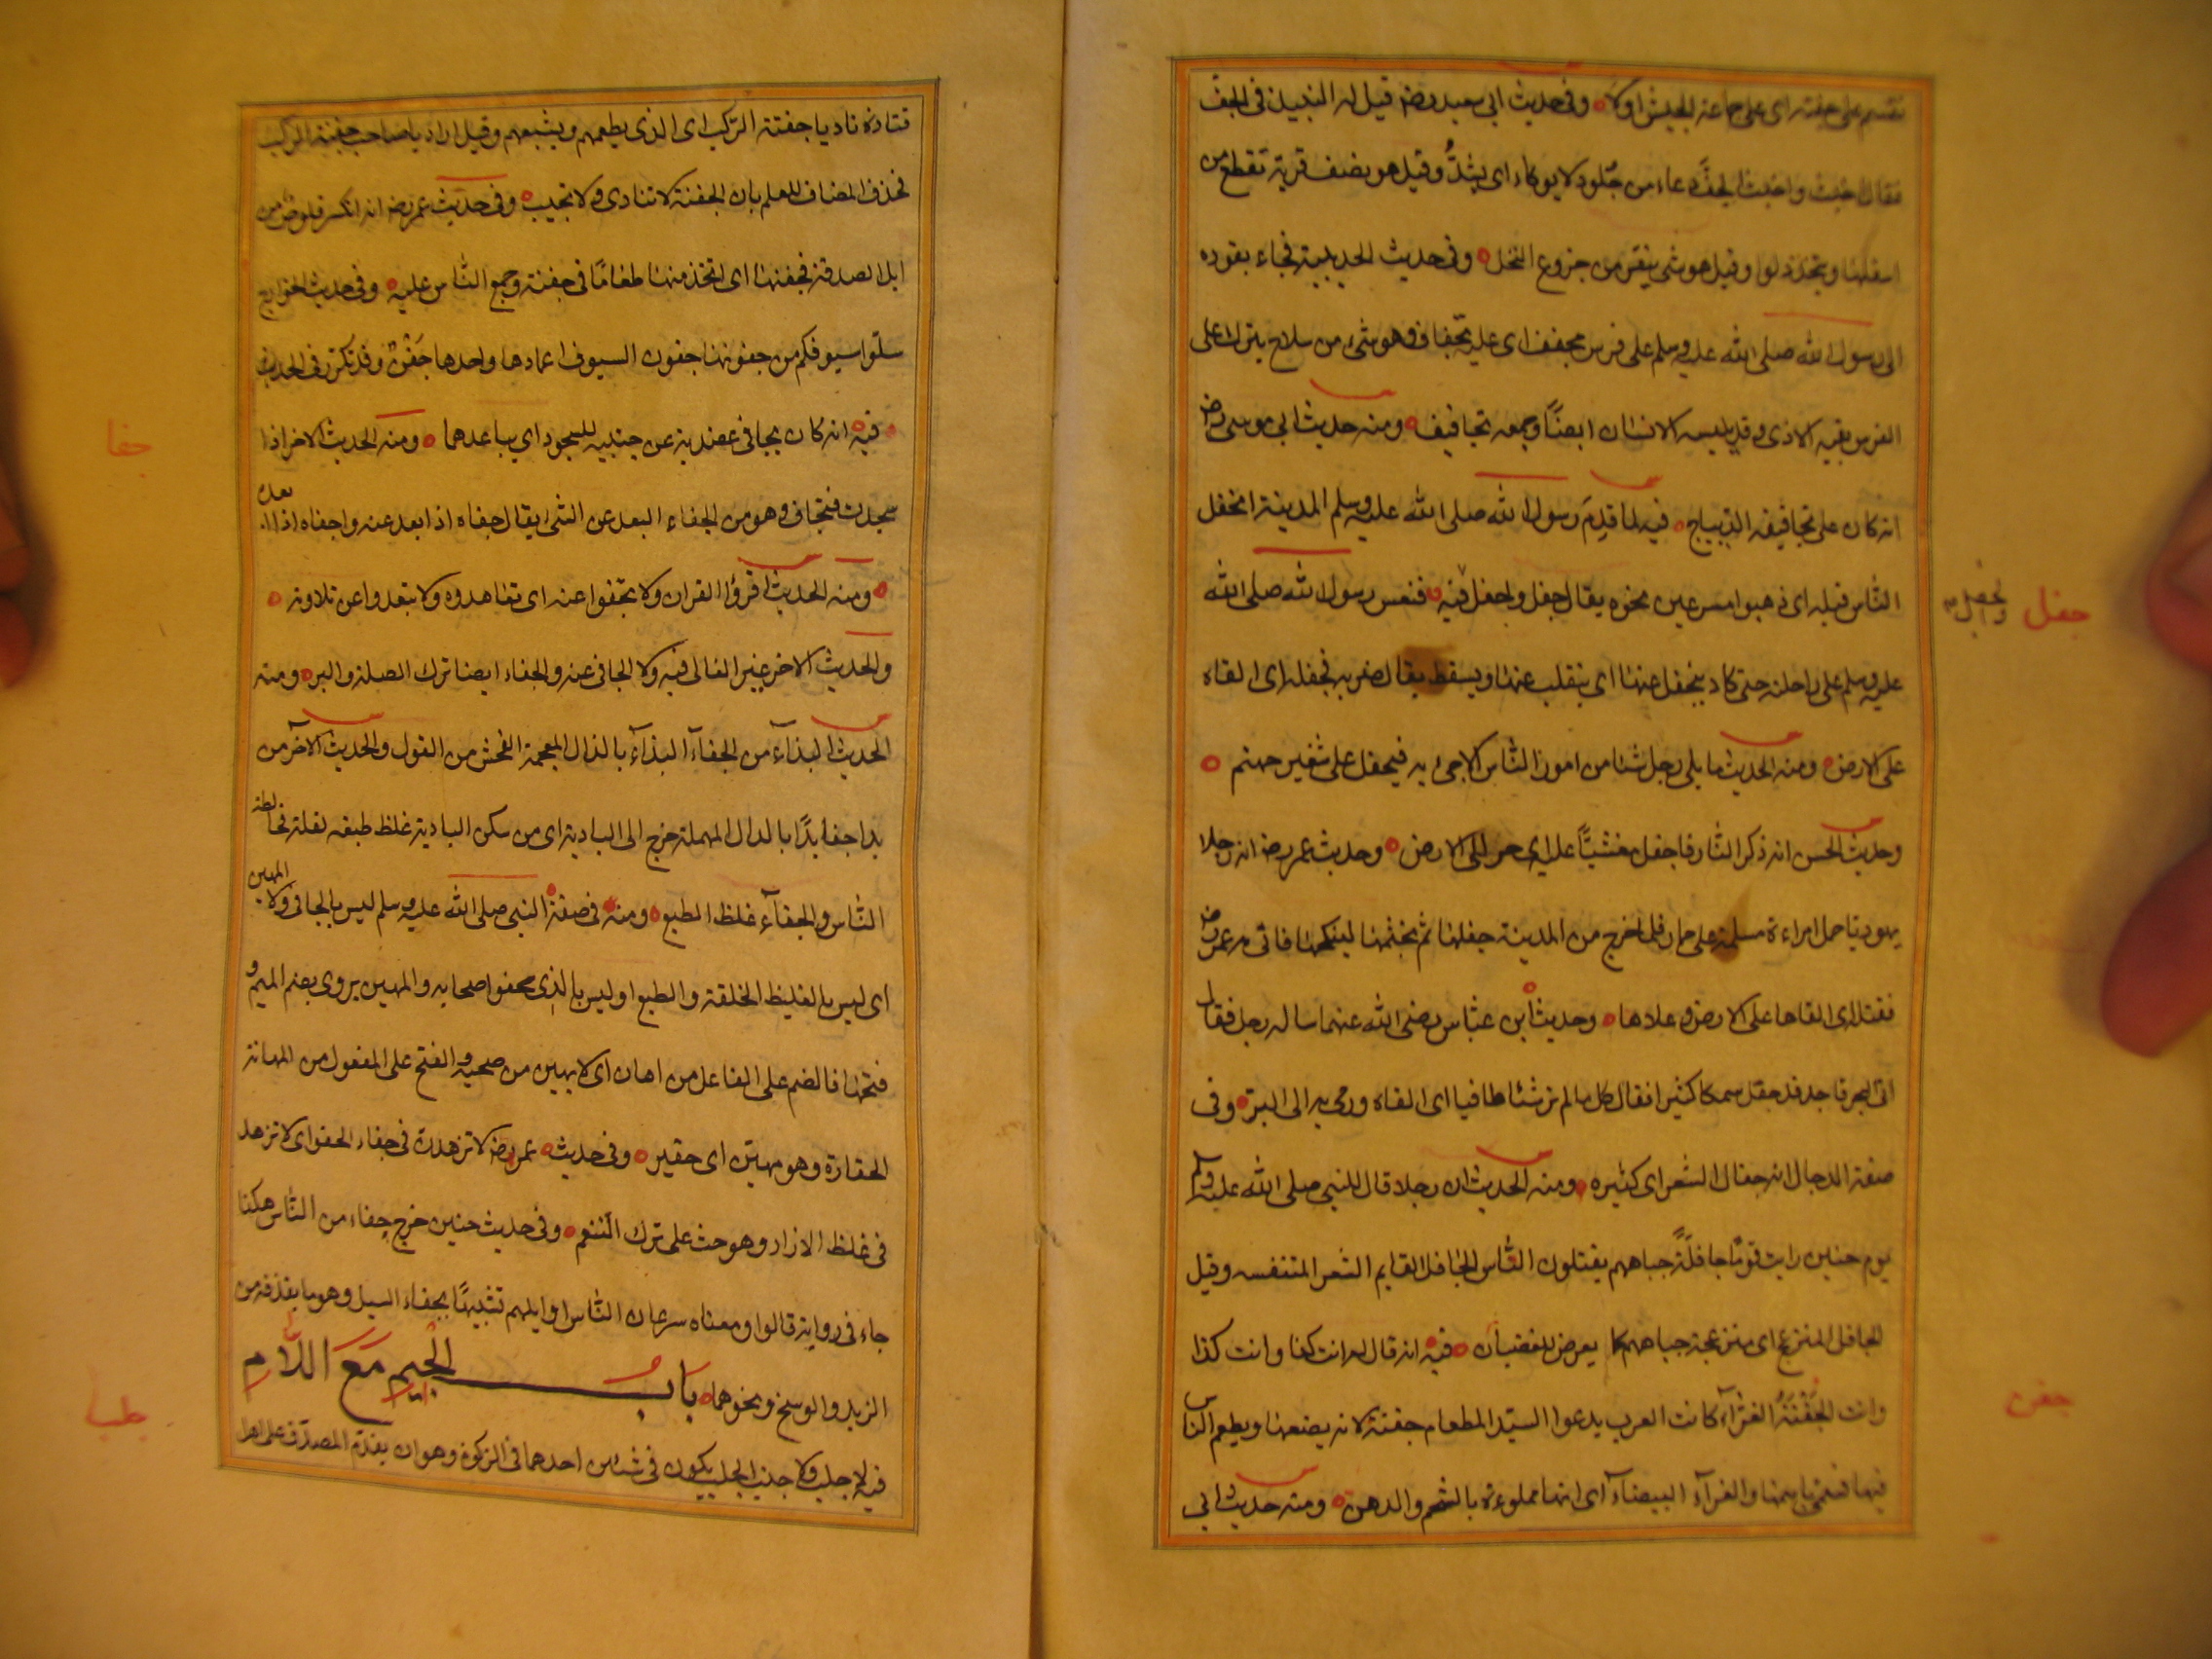 نقسم على جفته اى على جماعة الجيش اولا وفى حديث ابى سعيد رضه قيل له النبيذ فى الجف
فقال اخبث واخبث الجفّ وعاء من جُلود لا يوكاء اى يشدُّ وقيل هو نصف قربة تقطع من
اسفلها ويتخذ دلوا وقيل هو شى ينقر من جزوع النخل وفى حديث الحديبية فجاء بقوده
الى رسول الله صلى الله عليه وسلم على فرس مجفف اى عليه تجفاف وهو شئ من سلاح يترك على
الفرس يقيه الاذى وقد يلبسه الانسان ايضًا وجمعه تجافيف ومنه حديث ابى موسى رض
انه كان على تجافيفه الديباج فيه لما قدِمَ رسول الله صلى الله عليه وسلم المدينة انجفل
الناس قبله اى ذهبوا مسرعين نحوه يقال جفل واجفل فيه فنعس رسول الله صلى الله
جفل
وانجفل
عليه وسلم على راحلته حتى كاد ينجفل عنها اى ينقلب عنها ويسقط يقال ضربه فجفله اى القاه
على الارض ومنه الحديث ما يلى رجل شئا من امور الناس الا جئ به فيجفل على شفير جهنم
وحديث الحسن انه ذكر النار فاجفل مغشيًّا عليه اى خر الى الارض وحديث عمر رضه ان رجلا
يهوديا حمل امراءة مسلمة على حمار فلما خرج من المدينة جفلها ثم تجثمها لينكحها فاتى به عمر رض
فقتله اى القاها على الارض وعلاها وحديث ابن عباس رضى الله عنهما ساله رجل فقال
اتى البحر فاجد قد جفل سمكا كثيرا فقال كل ما لم تر شئا طافيا اى القاه ورمى به الى البر وفى
صفة الدجال انه جفال الشعر اى كثيره ومنه الحديث ان رجلا قال للنبى صلى الله عليه وآله
يوم حنين رايت قومًا جافلَةً جباههم يقتلون الناس الجافل القايم الشعر المتنفسه وقيل
الجافل المنزعج اى منزعجة جباههم كما يعرض للغضبان فيه انه قال له انت كذا وانت كذا
وانت الجَفْنَةُ الغرّآء كانت العرب يدعوا السيّد المطعام جفنة لانه يضعها ويطعم الناس
جفن
فيها فسمى باسمها والغرآء البيضاء اى انها مملوءة بالشحم والدهن ومنه حديث ابى
قتادة ناد يا جفنة الركب اى الذى يطعمهم ويشبعهم وقيل اراد يا صاحب جفنة الركب
فحذف المضاف للعلم بان الجفنة لا تنادى ولا تجيب وفى حديث عمر رضه انه انكسر قلوص من
ابل الصدقة فجفنها اى اتخذ منها طعامًا فى جفنة وجمع الناس عليه وفى حديث الخوارج
سلّوا سيوفكم من جفونها جفون السيوف اغمادها واحدها جَفن وقد تكرر فى الحديث
فيه انه كان يجافى عضديه عن جنبيه للسجود اى يباعدهما ومنه الحديث الاخر اذا
جفا
سجدت فتجاف وهو من الجفاء البعد عن الشى يقال جفاه اذا بعد عنه واجفاه اذا ابعده
ومنه الحديث اقرؤا القران ولا تجفوا عنه اى تعاهدوه ولا تبعدوا عن تلاوته
والحديث الاخر غير الغالى فيه ولا الجافى عنه والجفاء ايضا ترك الصلة والبر ومنه
الحديث البذاء من الجفآء البذآء بالذال المعجمة الفحش من القول والحديث الآخر من
بدا جفا بدًا بالدال المهملة خرج الى البادية اى من سكن البادية غلظ طبعه لقلة مخالطة
الناس والجفآء غلظ الطبع ومنه فى صفة النبى صلى الله عليه وسلم ليس بالجافى ولا المهين
اى ليس بالغليظ الخلقة والطبع او ليس بالذى يجفوا صحابه والمهين يروى بضم الميم و
فتحها فالضم على الفاعل من اهان اى لا يهين من صحبه والفتح على المفعول من المهانة
الحقارة وهو مهين اى حقير وفى حديث عمر رضه لا تزهدن فى جفاء الحقو اى لا تزهد
فى غلظ الازار وهو حث على ترك التنعم وفى حديث حنين خرج جفاء من الناس هكذا
جاء فى رواية قالوا ومعناه سرعان الناس اوايلهم تشبيهًا بجفاء السيل وهو ما يقذفه من
الزبد والوسخ ونحوهما باب الجيم مَعَ اللّام
فيه لا جلب ولا جنب الجلب يكون فى شئين احدهما فى الزكوة وهو ان يقدم المصدق على اهل